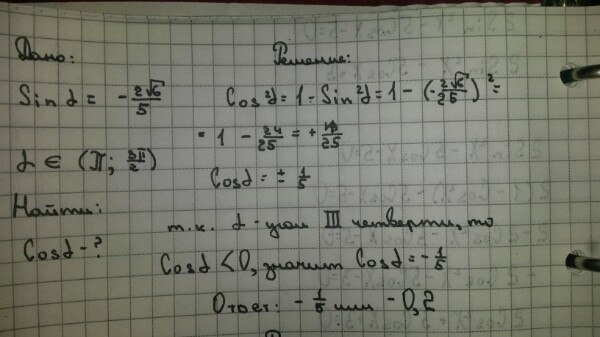 Дано:
Sin α = - 2√6/5
α ∈ (π; 3π/2)
Найти:
Cosα - ?
Решение:
Cos²α = 1 - Sin²α = 1 - (- 2√6/25)² =
= 1 - 24/25 = + 1/25
Cosα = ± 1/5
т.к. α - угол III четверти, то
Cosα < 0, значит Cosα = - 1/5
Ответ: - 1/5 или - 0,2